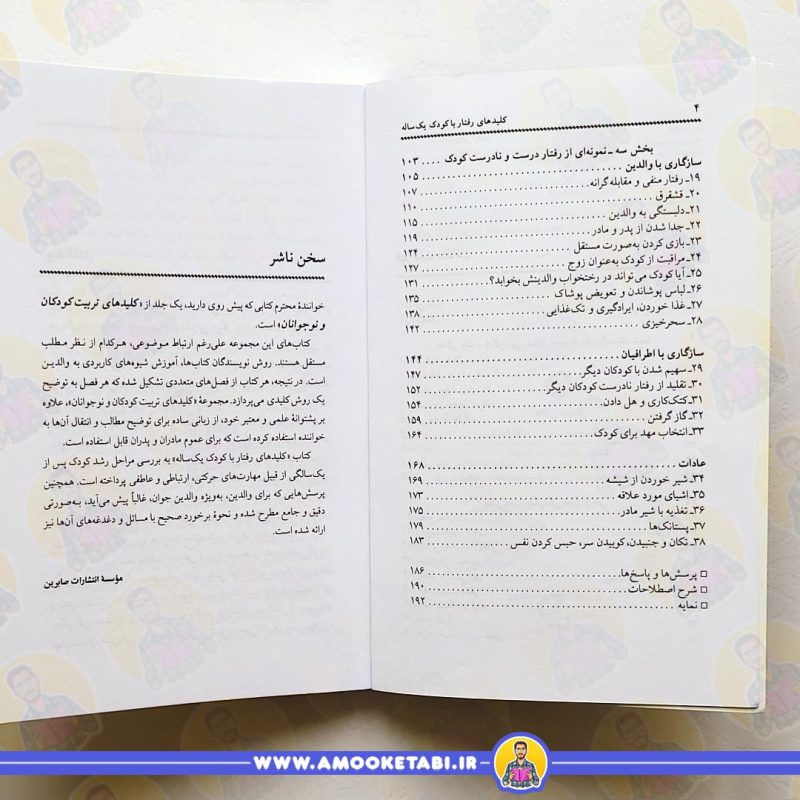 ۴
کلیدهای رفتار با کودک یک‌ساله
بخش سه ـ نمونه‌ای از رفتار درست و نادرست کودک .... ۱۰۳
سازگاری با والدین ..... ۱۰۵
۱۹ـ رفتار منفی و مقابله‌گرانه ..... ۱۰۷
۲۰ـ قشقرق ..... ۱۱۰
۲۱ـ دلبستگی به والدین ..... ۱۱۵
۲۲ـ جدا شدن از پدر و مادر ..... ۱۱۹
۲۳ـ بازی کردن به‌صورت مستقل ..... ۱۲۴
۲۴ـ مراقبت از کودک به‌عنوان زوج ..... ۱۲۷
۲۵ـ آیا کودک می‌تواند در رختخواب والدینش بخوابد؟ ..... ۱۳۱
۲۶ـ لباس پوشاندن و تعویض پوشاک ..... ۱۳۵
۲۷ـ غذا خوردن، ایرادگیری و تک‌غذایی ..... ۱۳۸
۲۸ـ سحرخیزی ..... ۱۴۲
سازگاری با اطرافیان ..... ۱۴۴
۲۹ـ سهیم شدن با کودکان دیگر ..... ۱۴۷
۳۰ـ تقلید از رفتار نادرست کودکان دیگر ..... ۱۵۲
۳۱ـ کتک‌کاری و هل دادن ..... ۱۵۴
۳۲ـ گاز گرفتن ..... ۱۵۹
۳۳ـ انتخاب مهد برای کودک ..... ۱۶۴
عادات ..... ۱۶۸
۳۴ـ شیر خوردن از شیشه ..... ۱۶۹
۳۵ـ اشیای مورد علاقه ..... ۱۷۳
۳۶ـ تغذیه با شیر مادر ..... ۱۷۵
۳۷ـ پستانک‌ها ..... ۱۷۹
۳۸ـ تکان و جنبیدن، کوبیدن سر، حبس کردن نفس ..... ۱۸۳
□ پرسش‌ها و پاسخ‌ها ..... ۱۸۶
□ شرح اصطلاحات ..... ۱۹۰
□ نمایه ..... ۱۹۲
سخن ناشر
خوانندهٔ محترم کتابی که پیش روی دارید، یک جلد از «کلیدهای تربیت کودکان
و نوجوانان» است.
کتاب‌های این مجموعه علی‌رغم ارتباط موضوعی، هرکدام از نظر مطلب
مستقل هستند. روش نویسندگان کتاب‌ها، آموزش شیوه‌های کاربردی به والدین
است. در نتیجه، هر کتاب از فصل‌های متعددی تشکیل شده که هر فصل به توضیح
یک روش کلیدی می‌پردازد. مجموعهٔ «کلیدهای تربیت کودکان و نوجوانان»، علاوه
بر پشتوانهٔ علمی و معتبر خود، از زبانی ساده برای توضیح مطالب و انتقال آن‌ها به
خواننده استفاده کرده است که برای عموم مادران و پدران قابل استفاده است.
کتاب «کلیدهای رفتار با کودک یک‌ساله» به بررسی مراحل رشد کودک پس از
یک‌سالگی از قبیل مهارت‌های حرکتی، ارتباطی و عاطفی پرداخته است. همچنین
پرسش‌هایی که برای والدین، به‌ویژه والدین جوان، غالباً پیش می‌آید، به‌صورتی
دقیق و جامع مطرح شده و نحوهٔ برخورد صحیح با مسائل و دغدغه‌های آن‌ها نیز
ارائه شده است.
مؤسسهٔ انتشارات صابرین
WWW.AMOOKETABI.IR